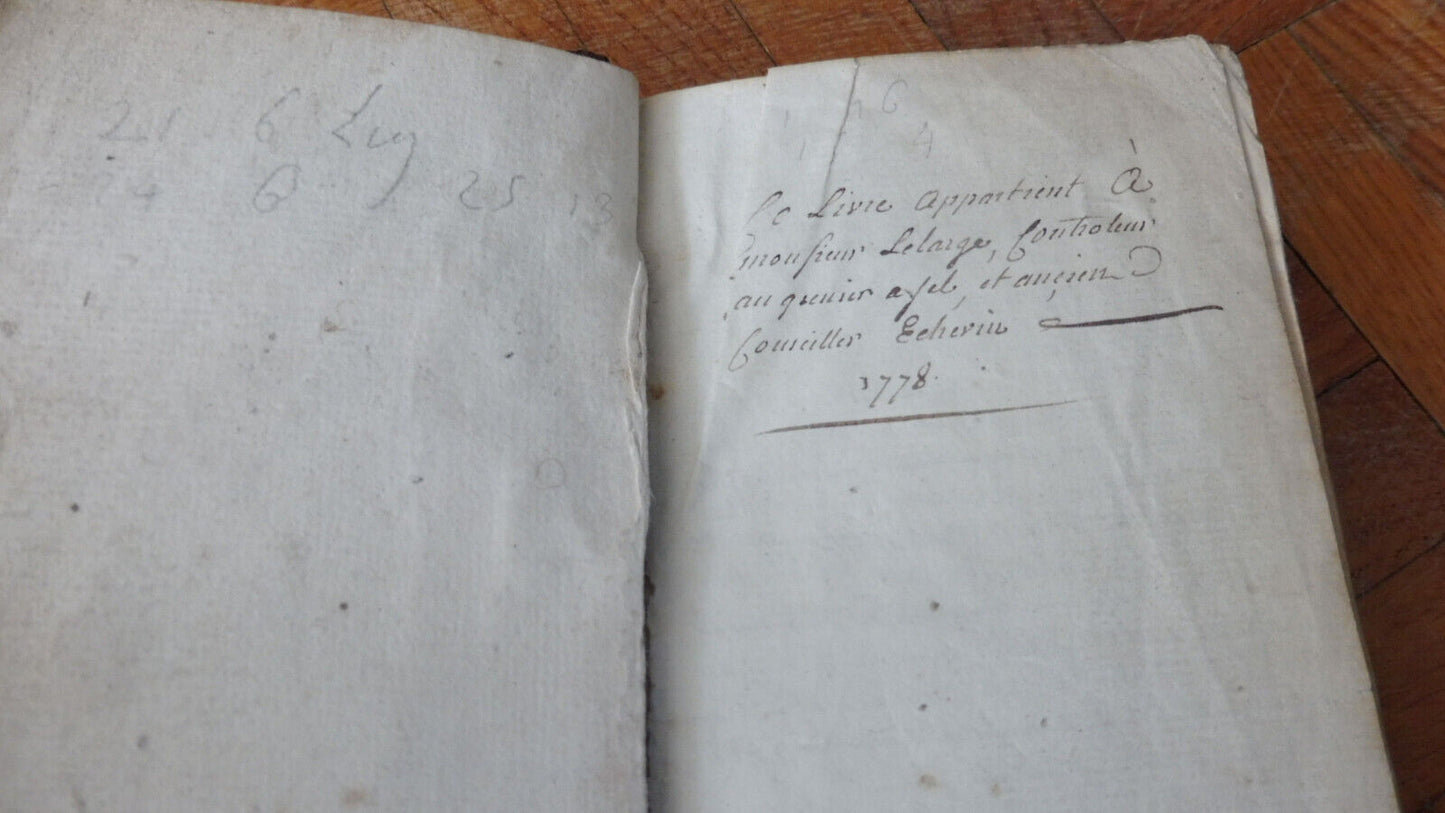 21 6 Lug
24 6 25 13
6
4
Ce Livre appartient À
monsieur Lelarge, Controleur
au grenier a sel, et ancien
Conseiller Echevin
1778.